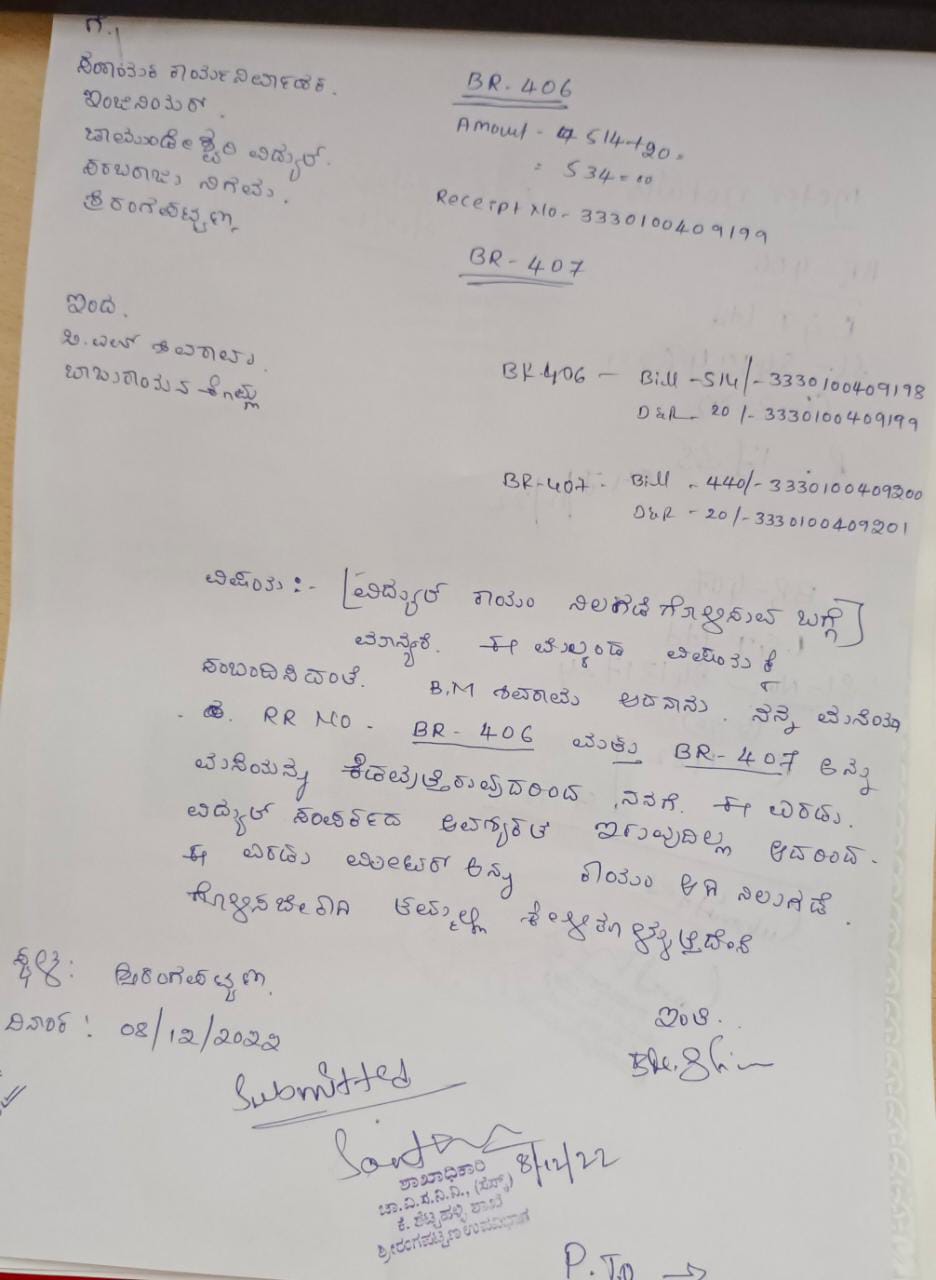 ಗೆ,
ಸಹಾಯಕ ಕಾರ್ಯನಿರ್ವಾಹಕ.
ಇಂಜಿನಿಯರ್.
ಚಾಮುಂಡೇಶ್ವರಿ ವಿದ್ಯುತ್.
ಸರಬರಾಜು ನಿಗಮ.
ಶ್ರೀರಂಗಪಟ್ಟಣ
BR. 406
Amount - 514+20=
= 534=00
Receipt No- 3330100409199
BR - 407
ಇಂದ.
ಬಿ.ಎಮ್ ಶಿವರಾಮು
ಬಾಬುರಾಯನ ಕೊಪ್ಪಲು
BR-406 - Bill -514/- 3330100409198
D&R - 20 /- 3330100409199
BR-407 - Bill - 440/- 3330100409200
D&R - 20/- 3330100409201
ವಿಷಯ :- [ವಿದ್ಯುತ್ ಕಾಯಂ ನಿಲಗಡೆಗೊಳಿಸುವ ಬಗ್ಗೆ]
ಮಾನ್ಯರೆ. ಈ ಮೇಲ್ಕಂಡ ವಿಷಯಕ್ಕೆ
ಸಂಬಂದಿಸಿದಂತೆ. B.M ಶಿವರಾಮು ಆದ ನಾನು. ನನ್ನ ಮನೆಯ
RR NO - BR - 406 ಮತ್ತು BR - 407 ಅನ್ನು
ಮನೆಯನ್ನು ಕೆಡವುತ್ತಿರುವುದರಿಂದ ನನಗೆ. ಈ ಎರಡು.
ವಿದ್ಯುತ್ ಸಂಪರ್ಕದ ಅವಶ್ಯಕತೆ ಇರುವುದಿಲ್ಲ ಆದರಿಂದ.
ಈ ಎರಡು ಮೀಟರ್ ಅನ್ನು ಕಾಯಂ ಆಗಿ ನಿಲುಗಡೆ.
ಗೊಳಿಸಬೇಕಾಗಿ ತಮ್ಮಲ್ಲಿ ಕೇಳಿಕೊಳ್ಳುತ್ತೇನೆ
ಸ್ಥಳ: ಶ್ರೀರಂಗಪಟ್ಟಣ.
ದಿನಾಂಕ: 08/12/2022
ಇಂತಿ.
Submitted
8/12/22
ಶಾಖಾಧಿಕಾರಿ
ಚಾ.ವಿ.ಸ.ನಿ.ನಿ., (ಸೆಸ್ಕ್)
ಕೆ. ಶೆಟ್ಟಹಳ್ಳಿ ಶಾಖೆ
ಶ್ರೀರಂಗಪಟ್ಟಣ ಉಪವಿಭಾಗ
P.T.O →